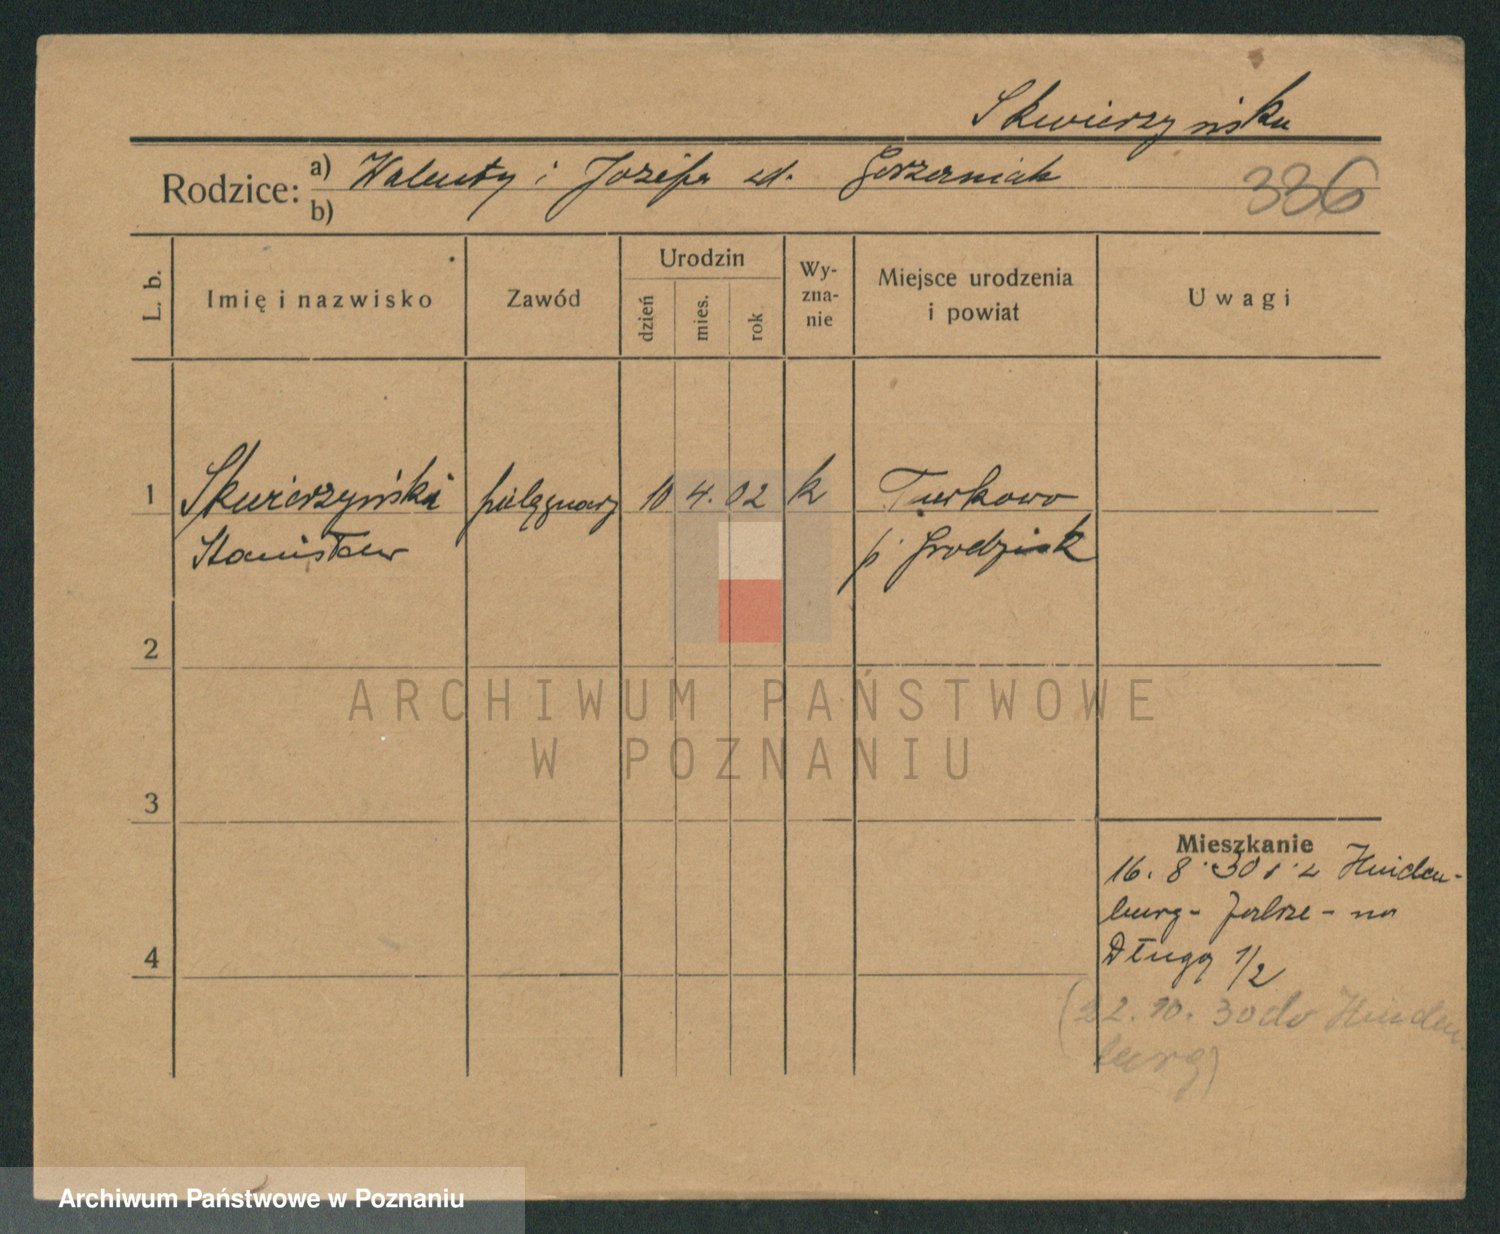 Skwierzyńska
336
Rodzice: a) Walenty i Józefa zd. Gorzerniak
b)
L. b. Imię i nazwisko Zawód Urodzin dzień mies. rok Wyznanie Miejsce urodzenia i powiat Uwagi
1 Skwierzyński pielęgniarz 10 4. 02 k Turkowo
Stanisław p. Grodzisk
2
3
4
Mieszkanie
16. 8. 30 r. z Hinden-
burg- Zabrze - na
Długą 1/2
(22. 10. 30 do Hinden
burg)
ARCHIWUM PAŃSTWOWE
W POZNANIU
Archiwum Państwowe w Poznaniu